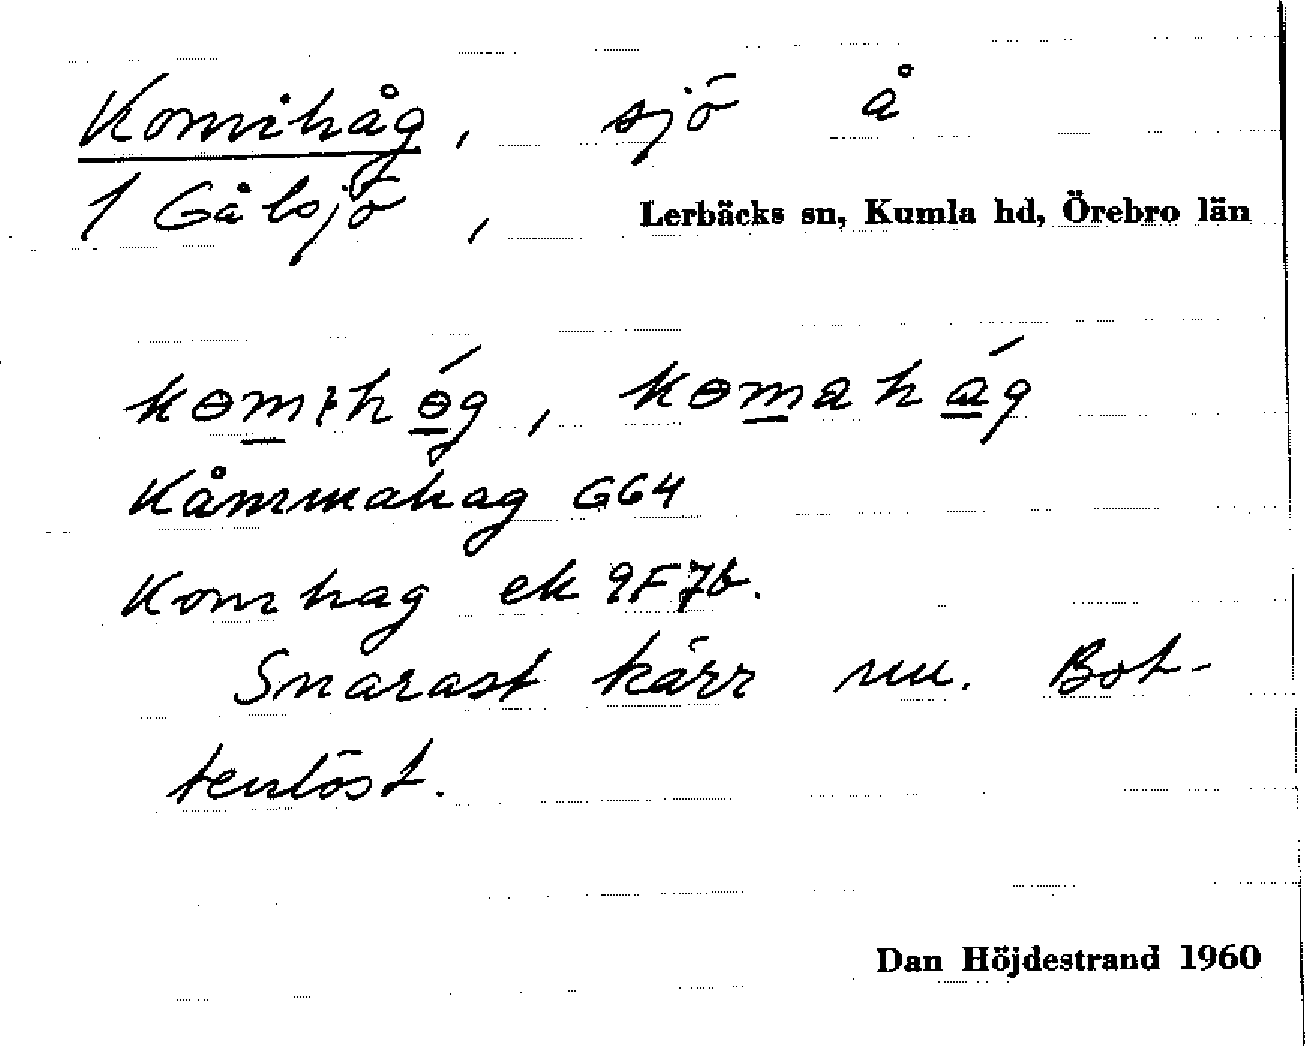 Komihåg, sjö å
1 Gålsjö, Lerbäcks sn, Kumla hd, Örebro län
kɵmɪhɵ́g, kɵmahág
Kåmmahag G64
Komhag ek 9F7b.
Snarast kärr nu. Bot-
tenlöst.
Dan Höjdestrand 1960